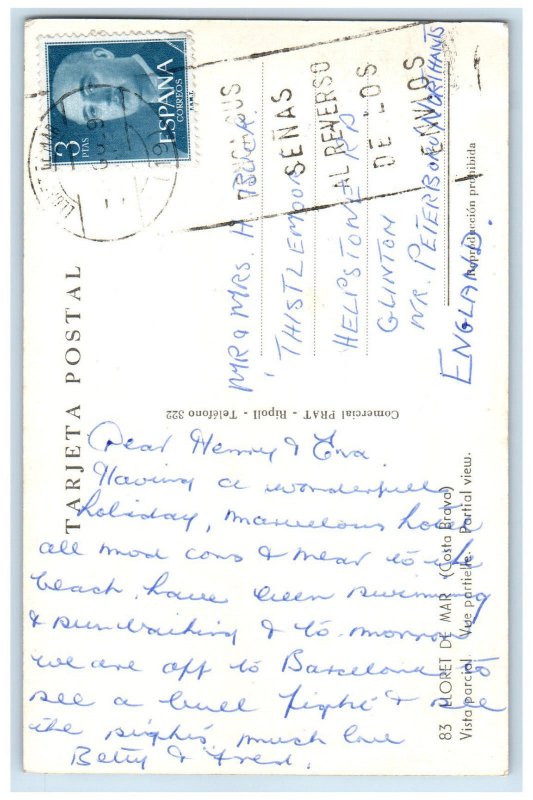 3
PTAS
ESPAÑA
CORREOS
F.N.M.T.
PONGA SUS
SEÑAS
AL REVERSO
DE LOS
ENVIOS
TARJETA POSTAL
MR & MRS. H
THISTLEMOOR
HELPSTONE RD
GLINTON
NR. PETERBORO NORTHANTS
ENGLAND.
Reproducción prohibida
Comercial PRAT - Ripoll - Teléfono 322
Dear Henry & Eva.
Having a wonderfull
holiday, marvelous hotel
all mod cons & near to the
beach. have been swimming
& sunbathing & to-morrow
we are off to Barcelona to
see a bull fight & see
the sights. much love
Betty & Fred.
83 LLORET DE MAR (Costa Brava)
Vista parcial. Vue partielle. Partial view.